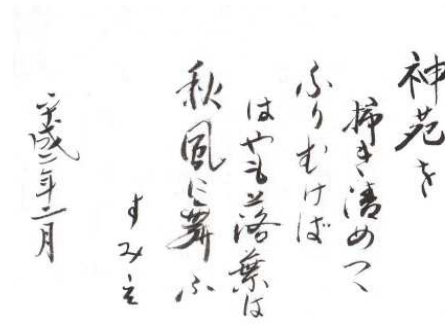 神苑を
掃き清めつゝ
ふりむけば
はやも落葉は
秋風に舞ふ
すみ
平成二年二月